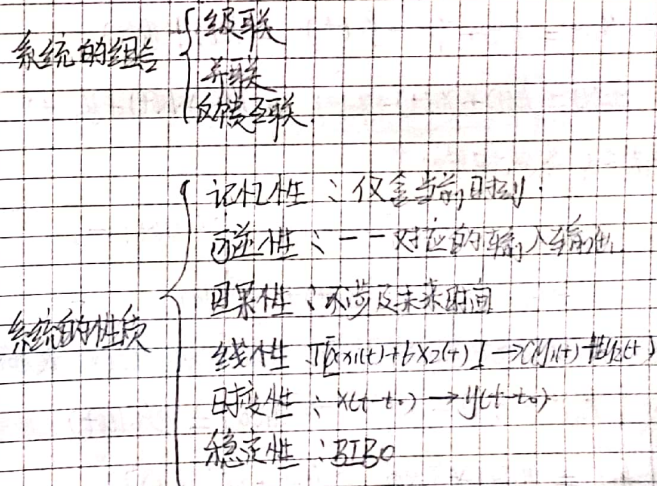 系统的组合
级联
并联
反馈互联.
系统的性质
记忆性:仅含当前时刻.
可逆性:一一对应的输入输出.
因果性:不涉及未来时间
线性 T[ax1(t)+bx2(t)]→ay1(t)+by2(t)
时变性:x(t-t0)→y(t-t0)
稳定性:BIBO